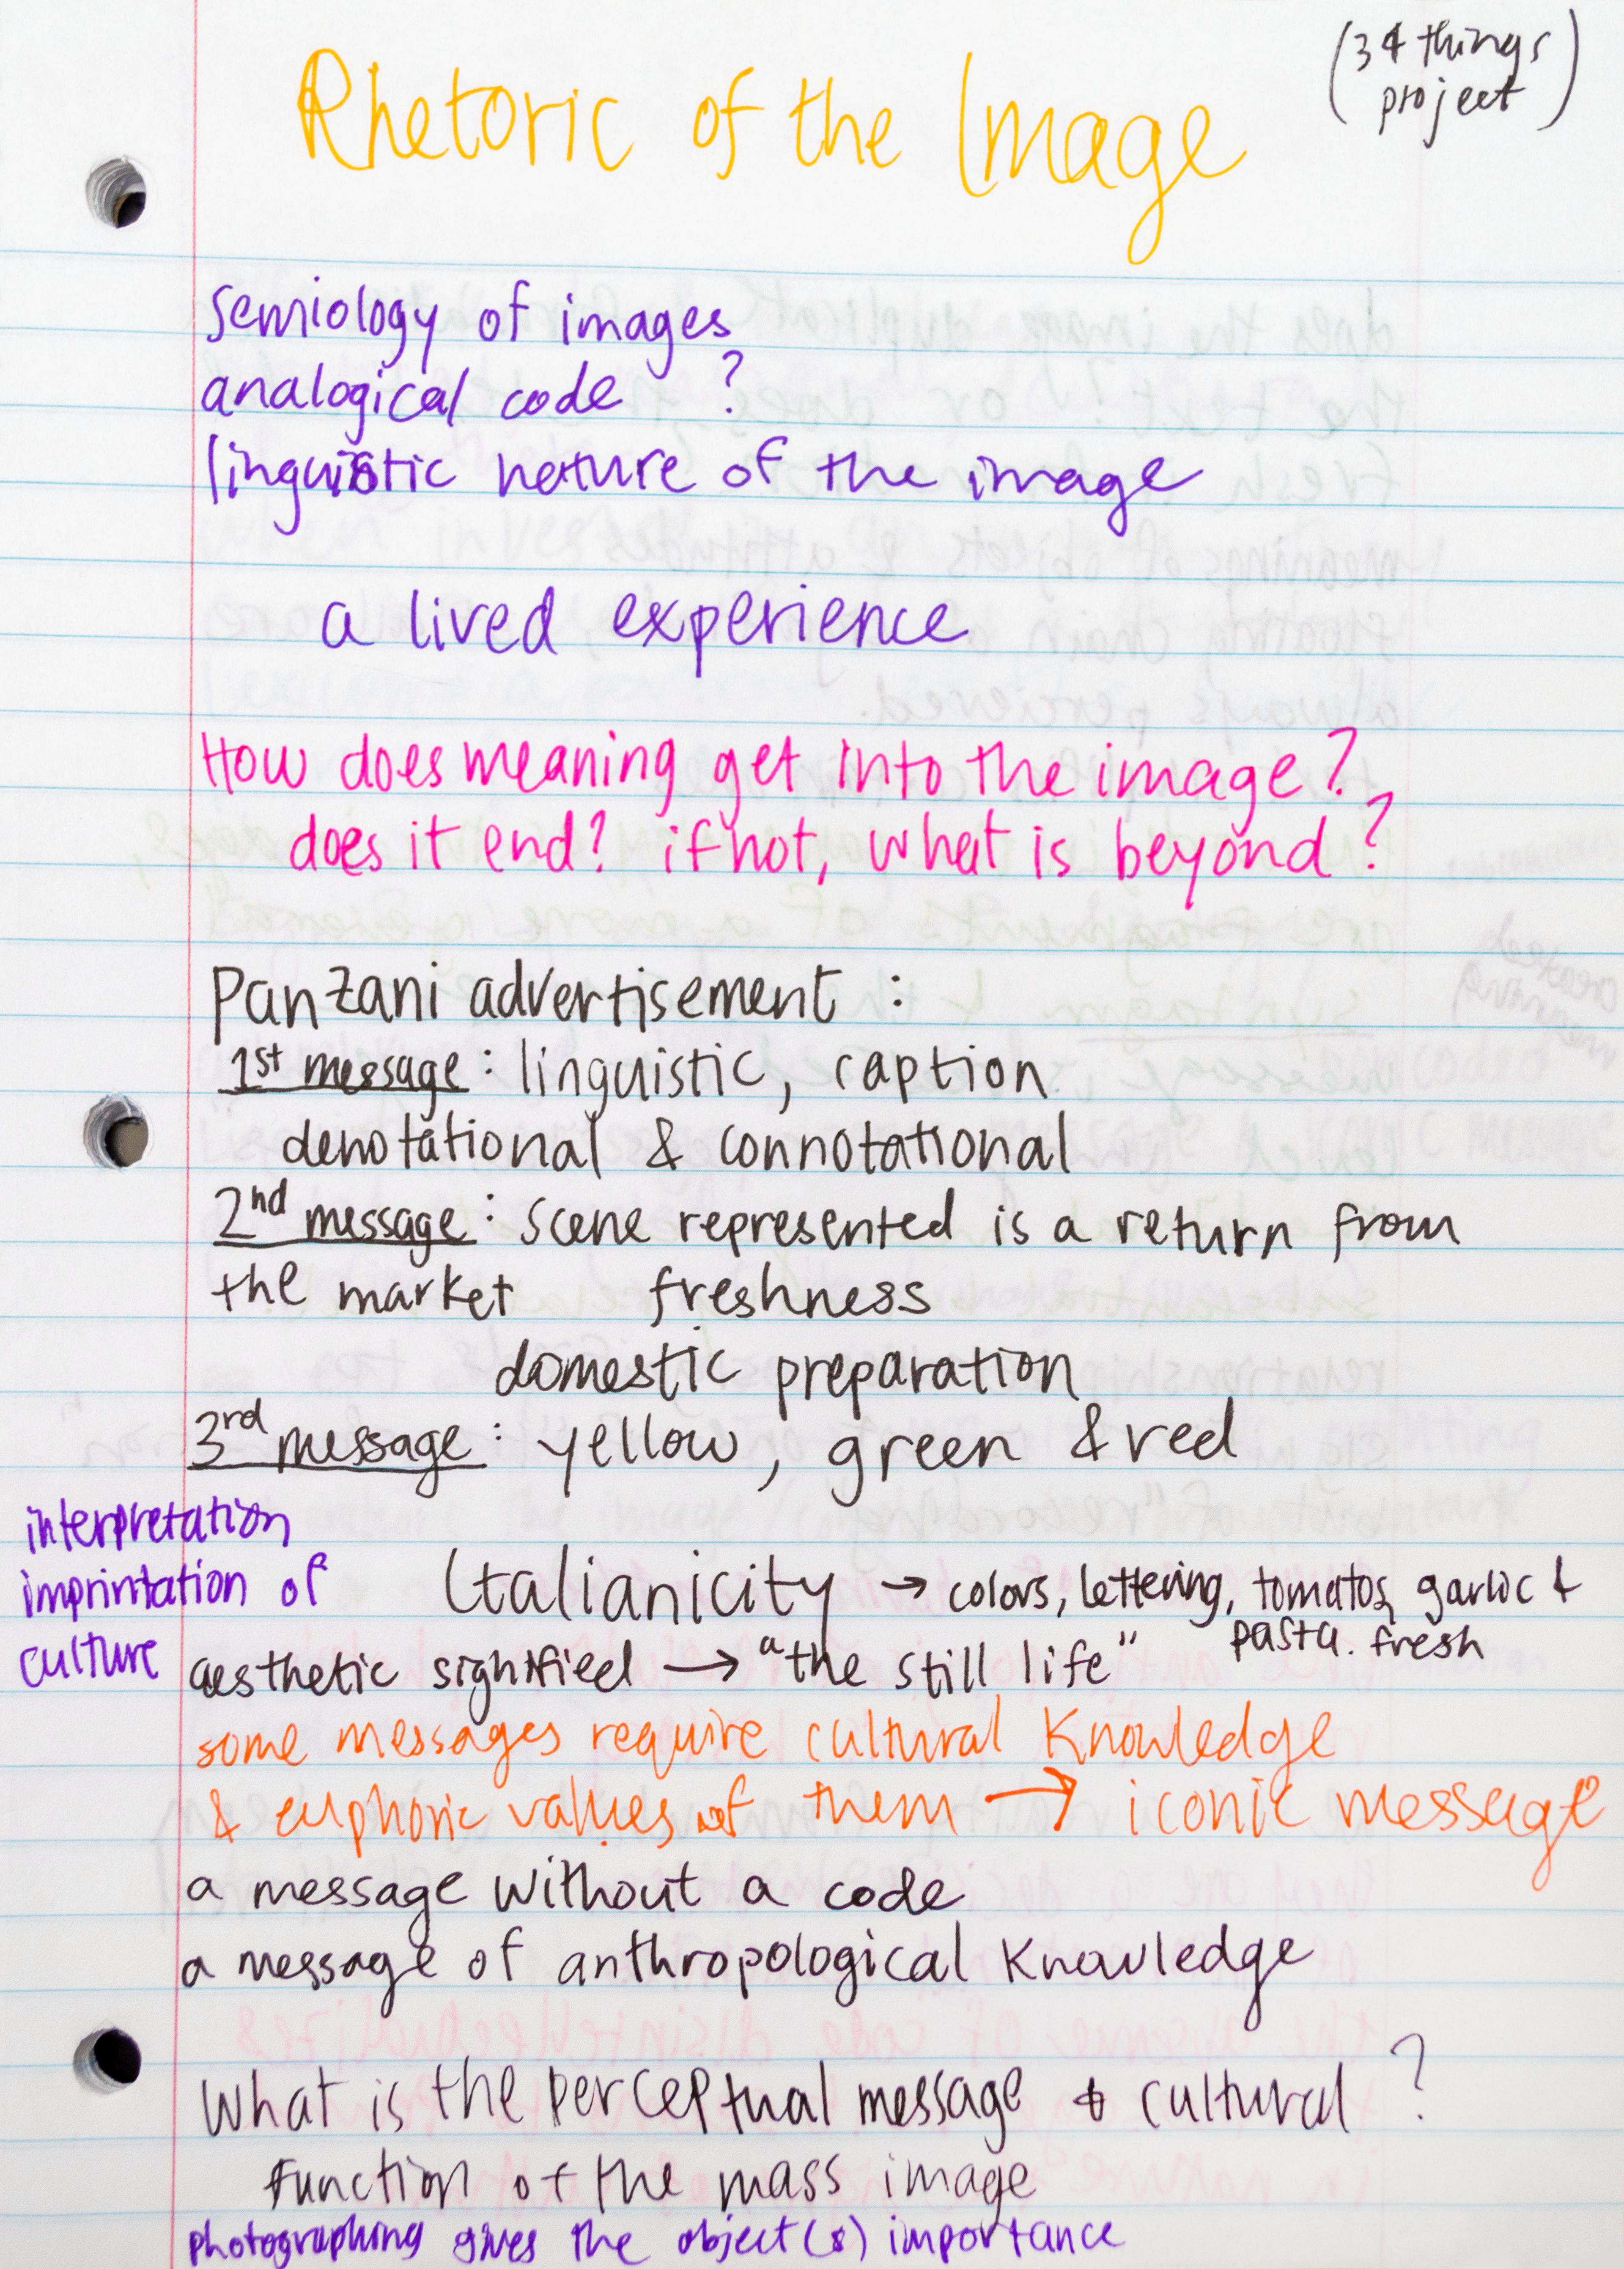 Rhetoric of the Image
(34 things
project)
Semiology of images
analogical code ?
linguistic nature of the image
a lived experience
How does meaning get into the image?
does it end? if not, what is beyond?
Panzani advertisement :
1st message : linguistic, caption
denotational & connotational
2nd message : scene represented is a return from
the market freshness
domestic preparation
3rd message : yellow, green & red
interpretation
imprintation of
culture
Italianicity → colors, lettering, tomatos, garlic &
pasta. fresh
aesthetic signified → "the still life"
some messages require cultural knowledge
& euphoric values of them → iconic message
a message without a code
a message of anthropological knowledge
What is the perceptual message & cultural ?
function of the mass image
photographing gives the object(s) importance